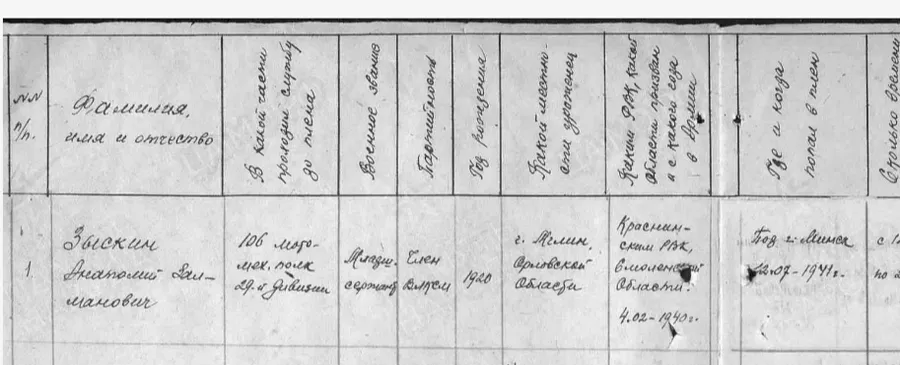 NN
п/п.
Фамилия,
имя и отчество
В какой части
проходил службу
до плена
Военное звание
Партийность
Год рождения
Какой местно-
сти уроженец
Каким РВК, какой
Области призван
и с какого года
в Армии
Где и когда
попал в плен
Сколько времени
1.
Зыскин
Анатолий Зал-
манович
106 мото-
мех. полк
29-й Дивизии
Младш.
сержант
Член
ВЛКСМ
1920
г. Мглин,
Орловской
Области
Краснин-
ским РВК,
Смоленской
Области.
4.02-1940г.
Под г. Минск
12.07-1941г.
с 1
по 2